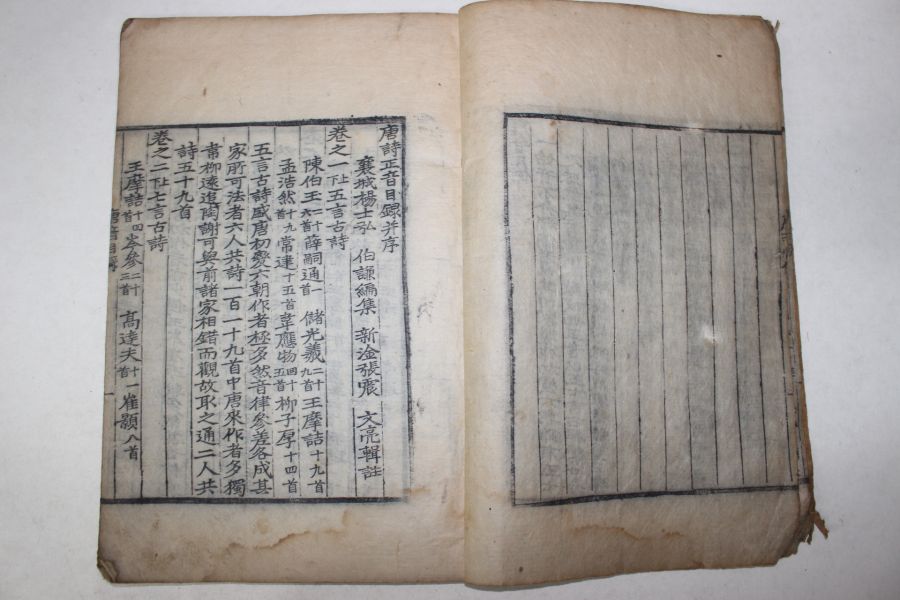 唐詩正音目録并序
襄城楊士弘 伯謙編集 新淦張震 文亮輯註
卷之一 上下 五言古詩
陳伯玉二十六首 薛嗣通一首 儲光羲二十九首 王摩詰十九首
孟浩然十九首 常建十五首 韋應物四十五首 柳子厚十四首
五言古詩盛唐初變六朝作者極多然音律參差各成其
家所可法者六人共詩一百一十九首中唐來作者多獨
韋柳遠追陶謝可與前諸家相錯而觀故取之通二人共
詩五十九首
卷之二 上下 七言古詩
王摩詰十四首 岑參二十三首 高達夫十一首 崔顥八首